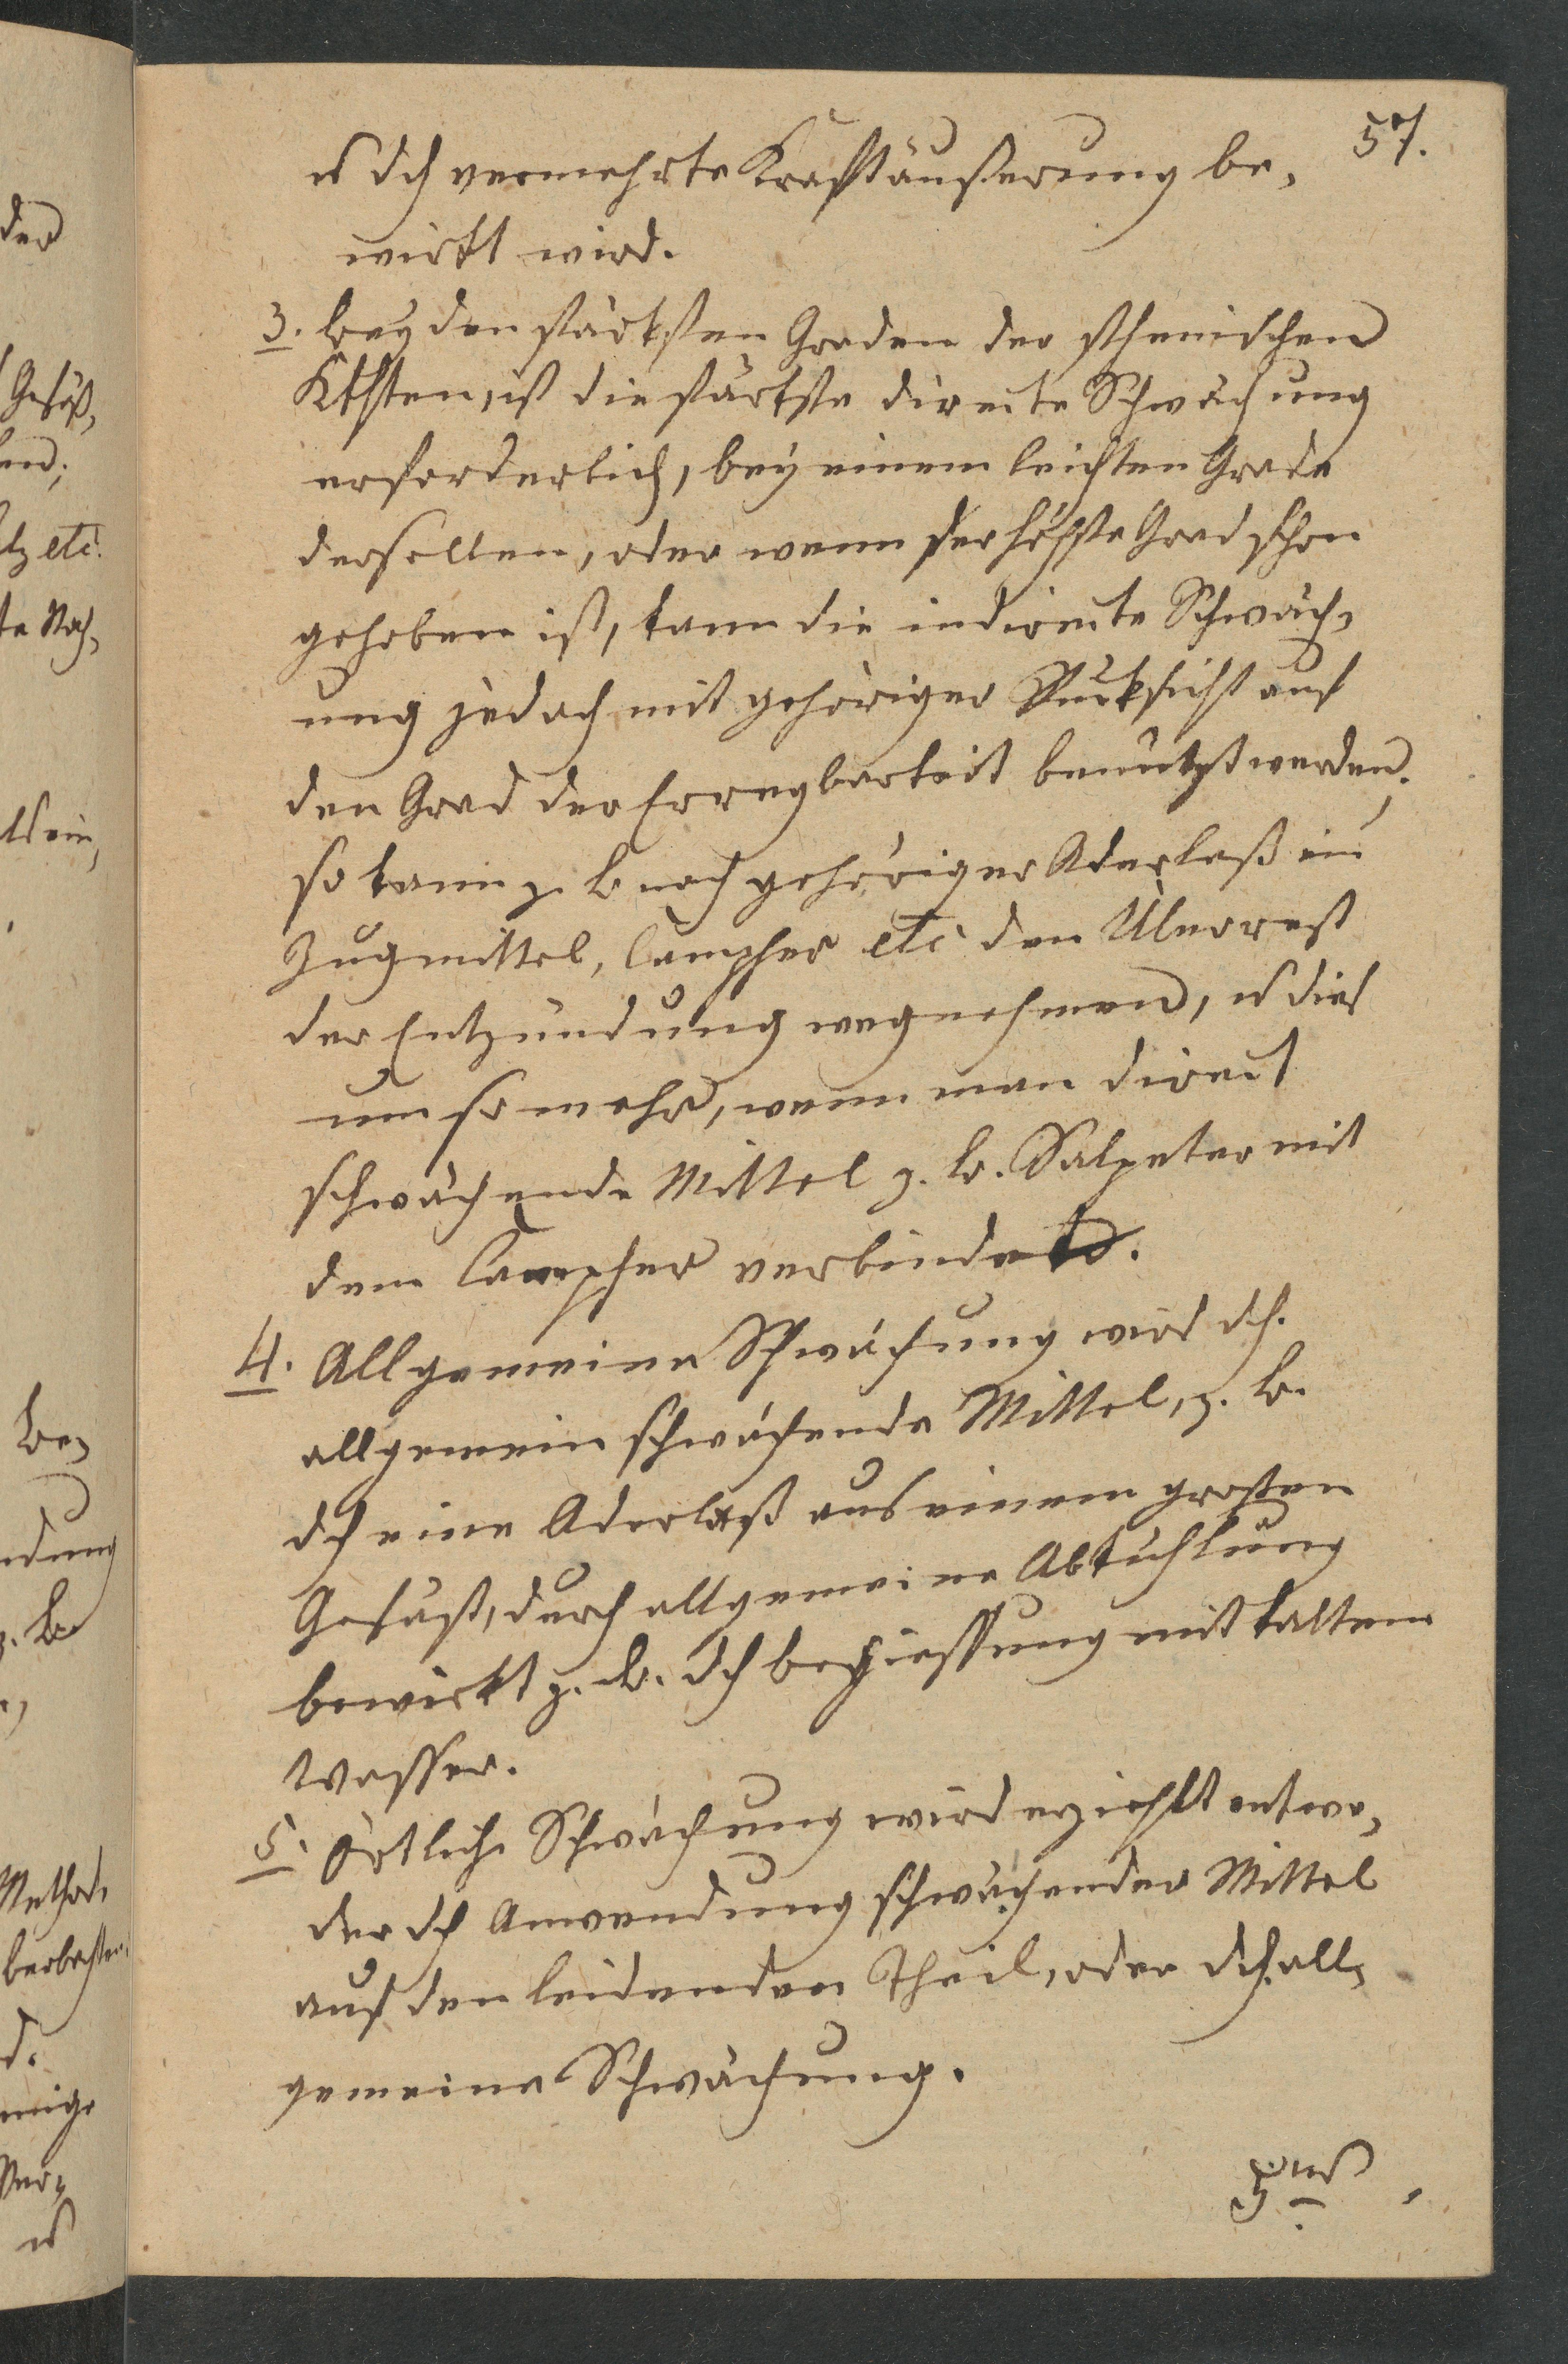 57.
u dch vermehrte Kraftäußerung be,
wirkt wird.
3. Bey den stärksten Graden der sthenischen
Kkhten, ist die stärkste directe Schwächung
erforderlich, bey einem leichten Grade
derselben, oder wenn der höchste Grad schon
gehoben ist, kann die indirecte Schwäch,
ung jedoch mit gehöriger Rücksicht auf
den Grad der Erregbarkeit benützt werden;
so kann z. B nach gehöriger Aderlaß ein
Zugmittel, Campher etc den Überrest
der Entzündung wegnehmen, u dies
um so mehr, wenn man direct
schwächende Mittel z. B. Salpeter mit
dem Campher verbindet.
4. Allgemeine Schwächung wird dch.
allgemein schwächende Mittel, z. B.
dch eine Aderlaß aus einem großen
Gefäß, durch allgemeine Abkühlung
bewirkt z. B. dch begiessung mit kaltem
Wasser.
5. Örtliche Schwächung wird erziehlt entwe,
der dch Anwendung schwächender Mittel
auf den leidenden Theil, oder dch. all,
gemeine Schwächung.
5tes
der
Gefäß,
etc.
Nach,
Be,
ndung
z. B
Method,
beobachten
d.
Ver,
u